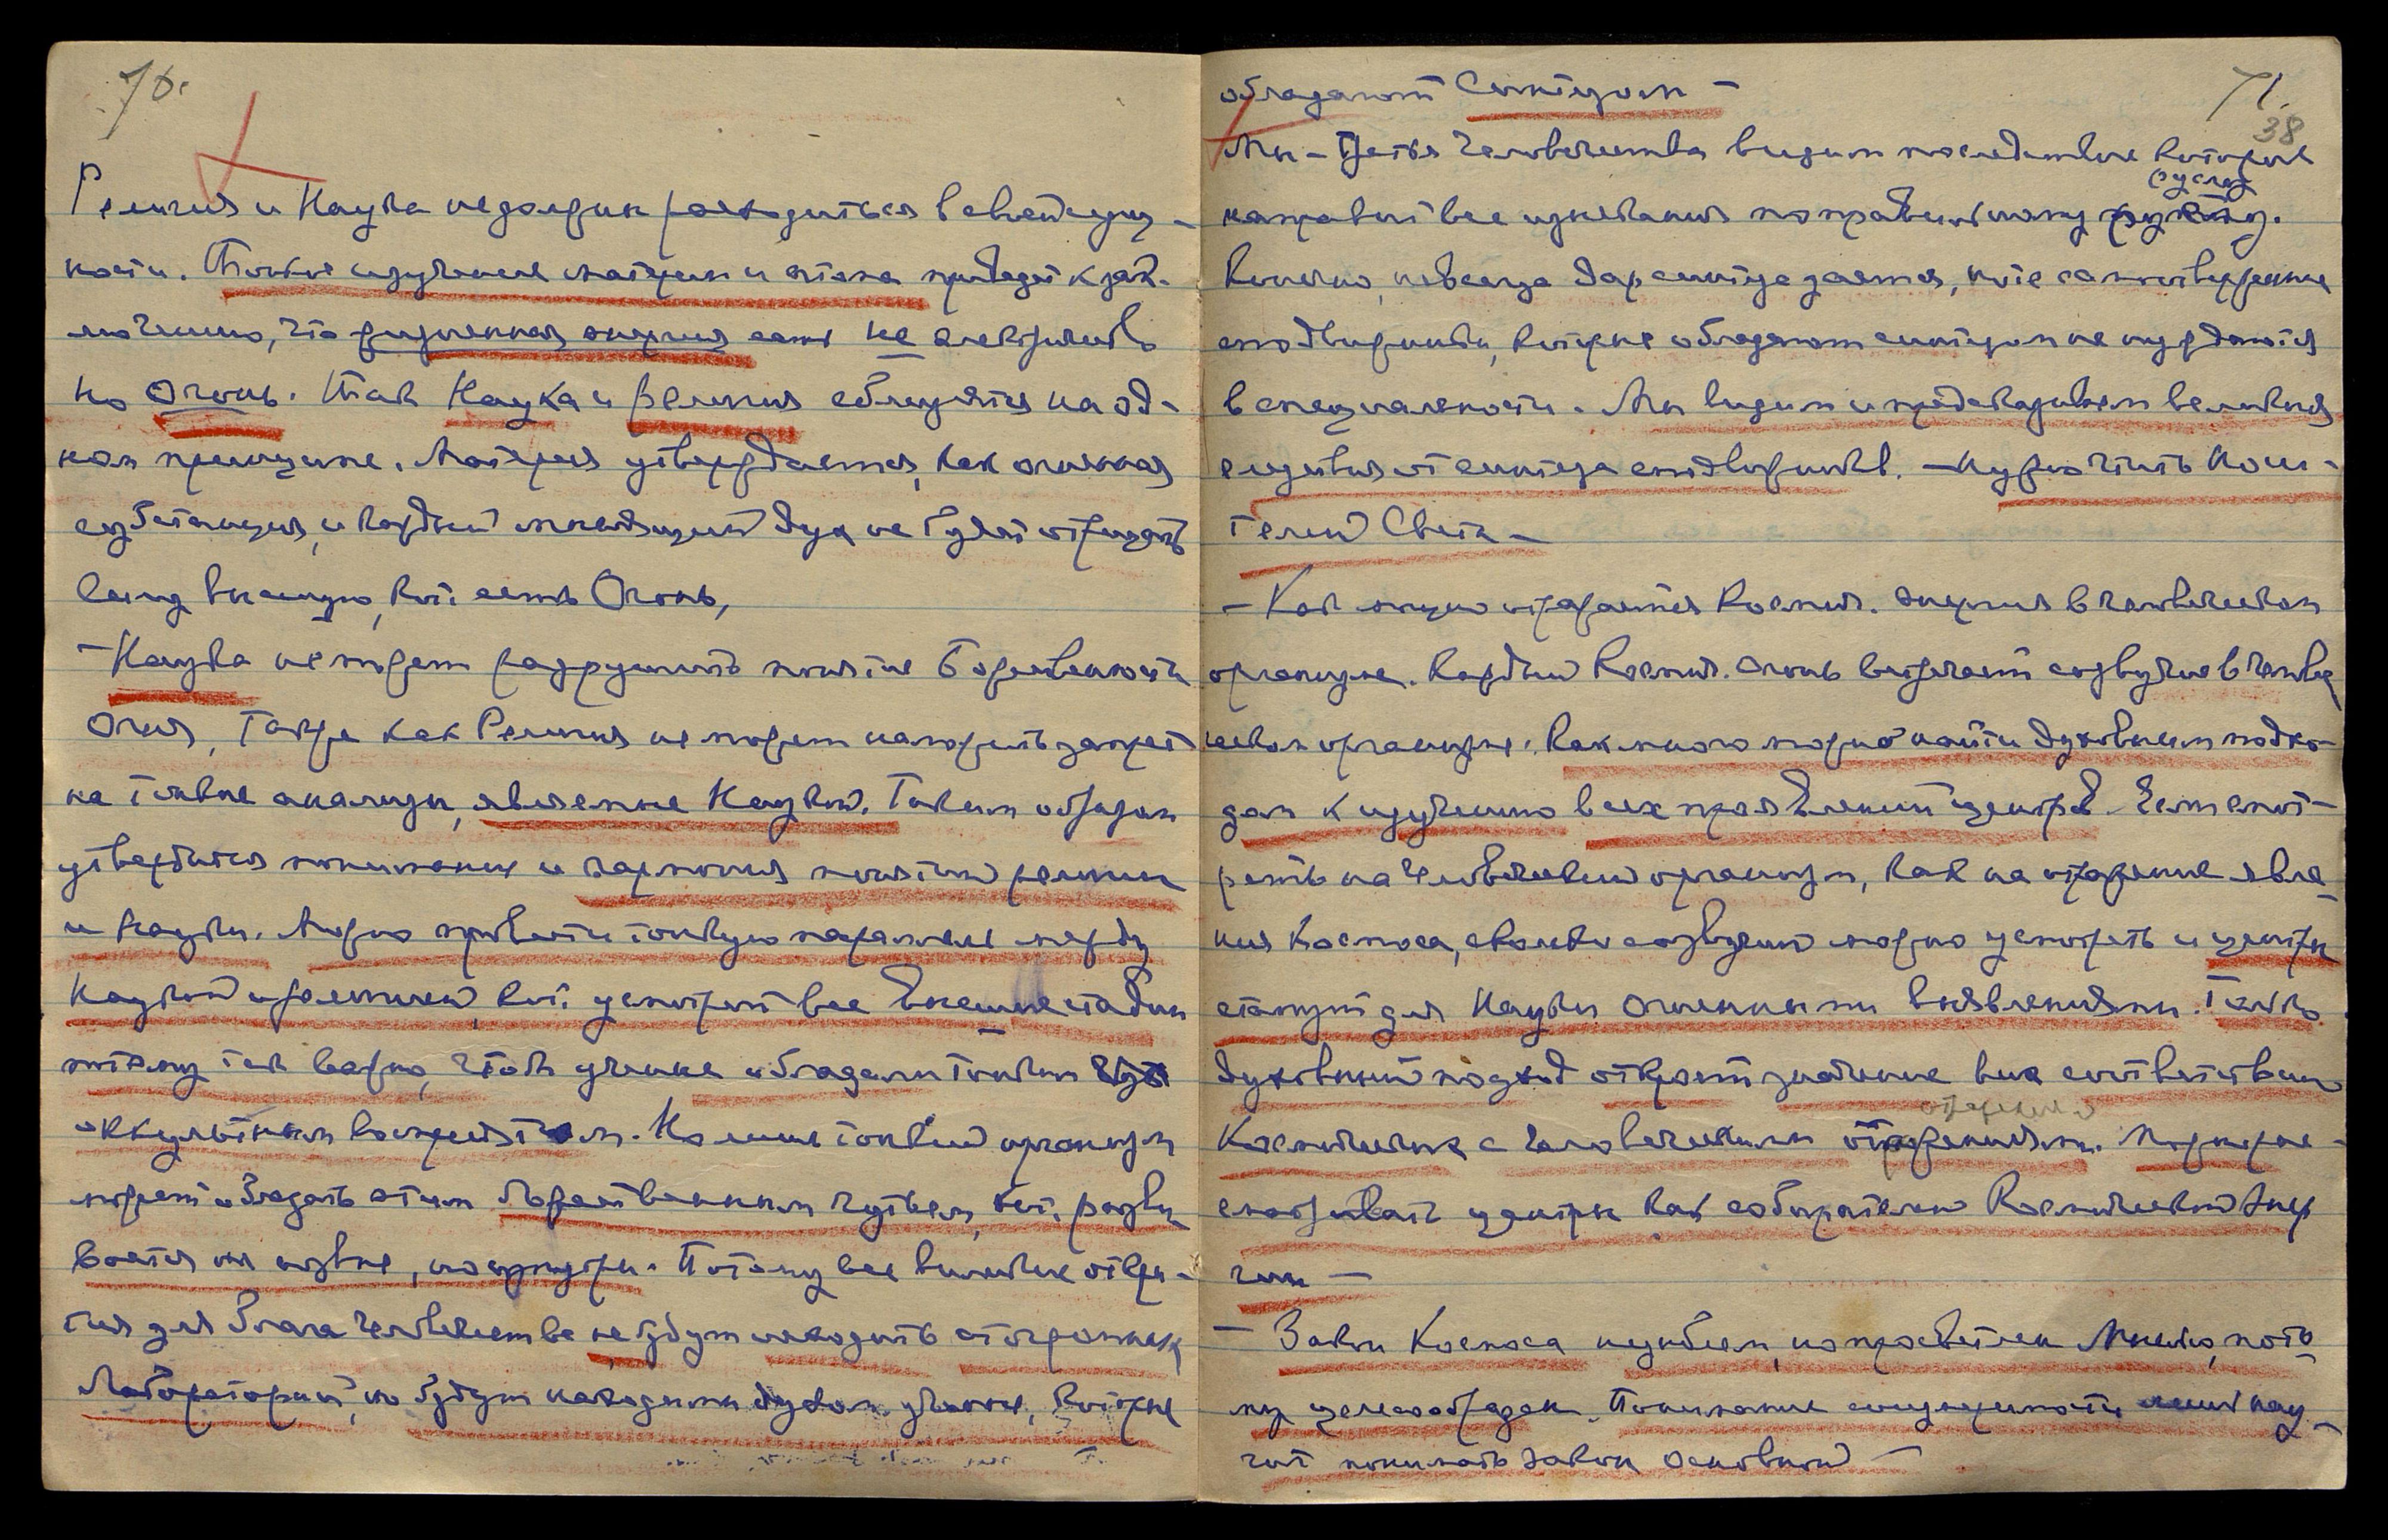 70.
Религия и Наука не должны расходиться в своей сущ-
ности. Тонкое изучение материи и атома приведет к зак-
лючению, что жизненная энергия есть не электричество
но Огонь. Так Наука и религия сблизятся на од-
ном принципе. Материя утверждается, как огненная
субстанция, и каждый мыслящий дух не будет отрицать
силу высшую, кот. есть Огонь,
– Наука не может разрушить понятие Божественности
Огня, также как Религия не может наложить запрет
на тонкие анализы, явленные Наукой. Таким образом
утвердится понимание и гармония понятий религии
и Науки. Можно провести тонкую параллель между
Наукой и религией, кот. усмотрит все внешние стадии
потому так важно, чтоб ученые обладали тонким
оккультным восприятием. Но лишь тонкий организм
может обладать этим божественным чутьем, кот. разви
вается не извне, но изнутри. Потому все великие откры-
тия для блага человечества не будут исходить от огромных
Лабораторий, но будут находимы духом ученых, которые
71.
38
обладают Синтезом –
Мы – Братья Человечества видим последствие которое
русло
направит все изыскания по правильному руслу.
Конечно, не всегда дар синтеза дается, но те самоотверженные
сподвижники, которые обладают синтезом не нуждаются
в специальности. Мы видим и предсказываем великие
следствия от синтеза сподвижников. – Нужно чтить Носи-
телей Света –
– Как мощно отражается Космич. энергия в человеческом
организме. Каждый Космич. Огонь встречает созвучие в челове
ческом организме. Как много можно найти духовным подхо-
дом к изучению всех проявлений центров. Если смот-
реть на Человеческий организм, как на отражение явле-
ния Космоса, сколько созвучий можно усмотреть и центры
станут для Науки Огненными выявлениями. Только
духовный подход откроет значение всех соответствий
отражения
Космических с человеческими отражениями. Можно рас-
сматривать центры как собирателей Космической Энер
гии –
– Закон Космоса незыблем, но просветлен Мыслью, пото-
му целесообразен. Понимание сущности нау-
чит понимать закон основной –